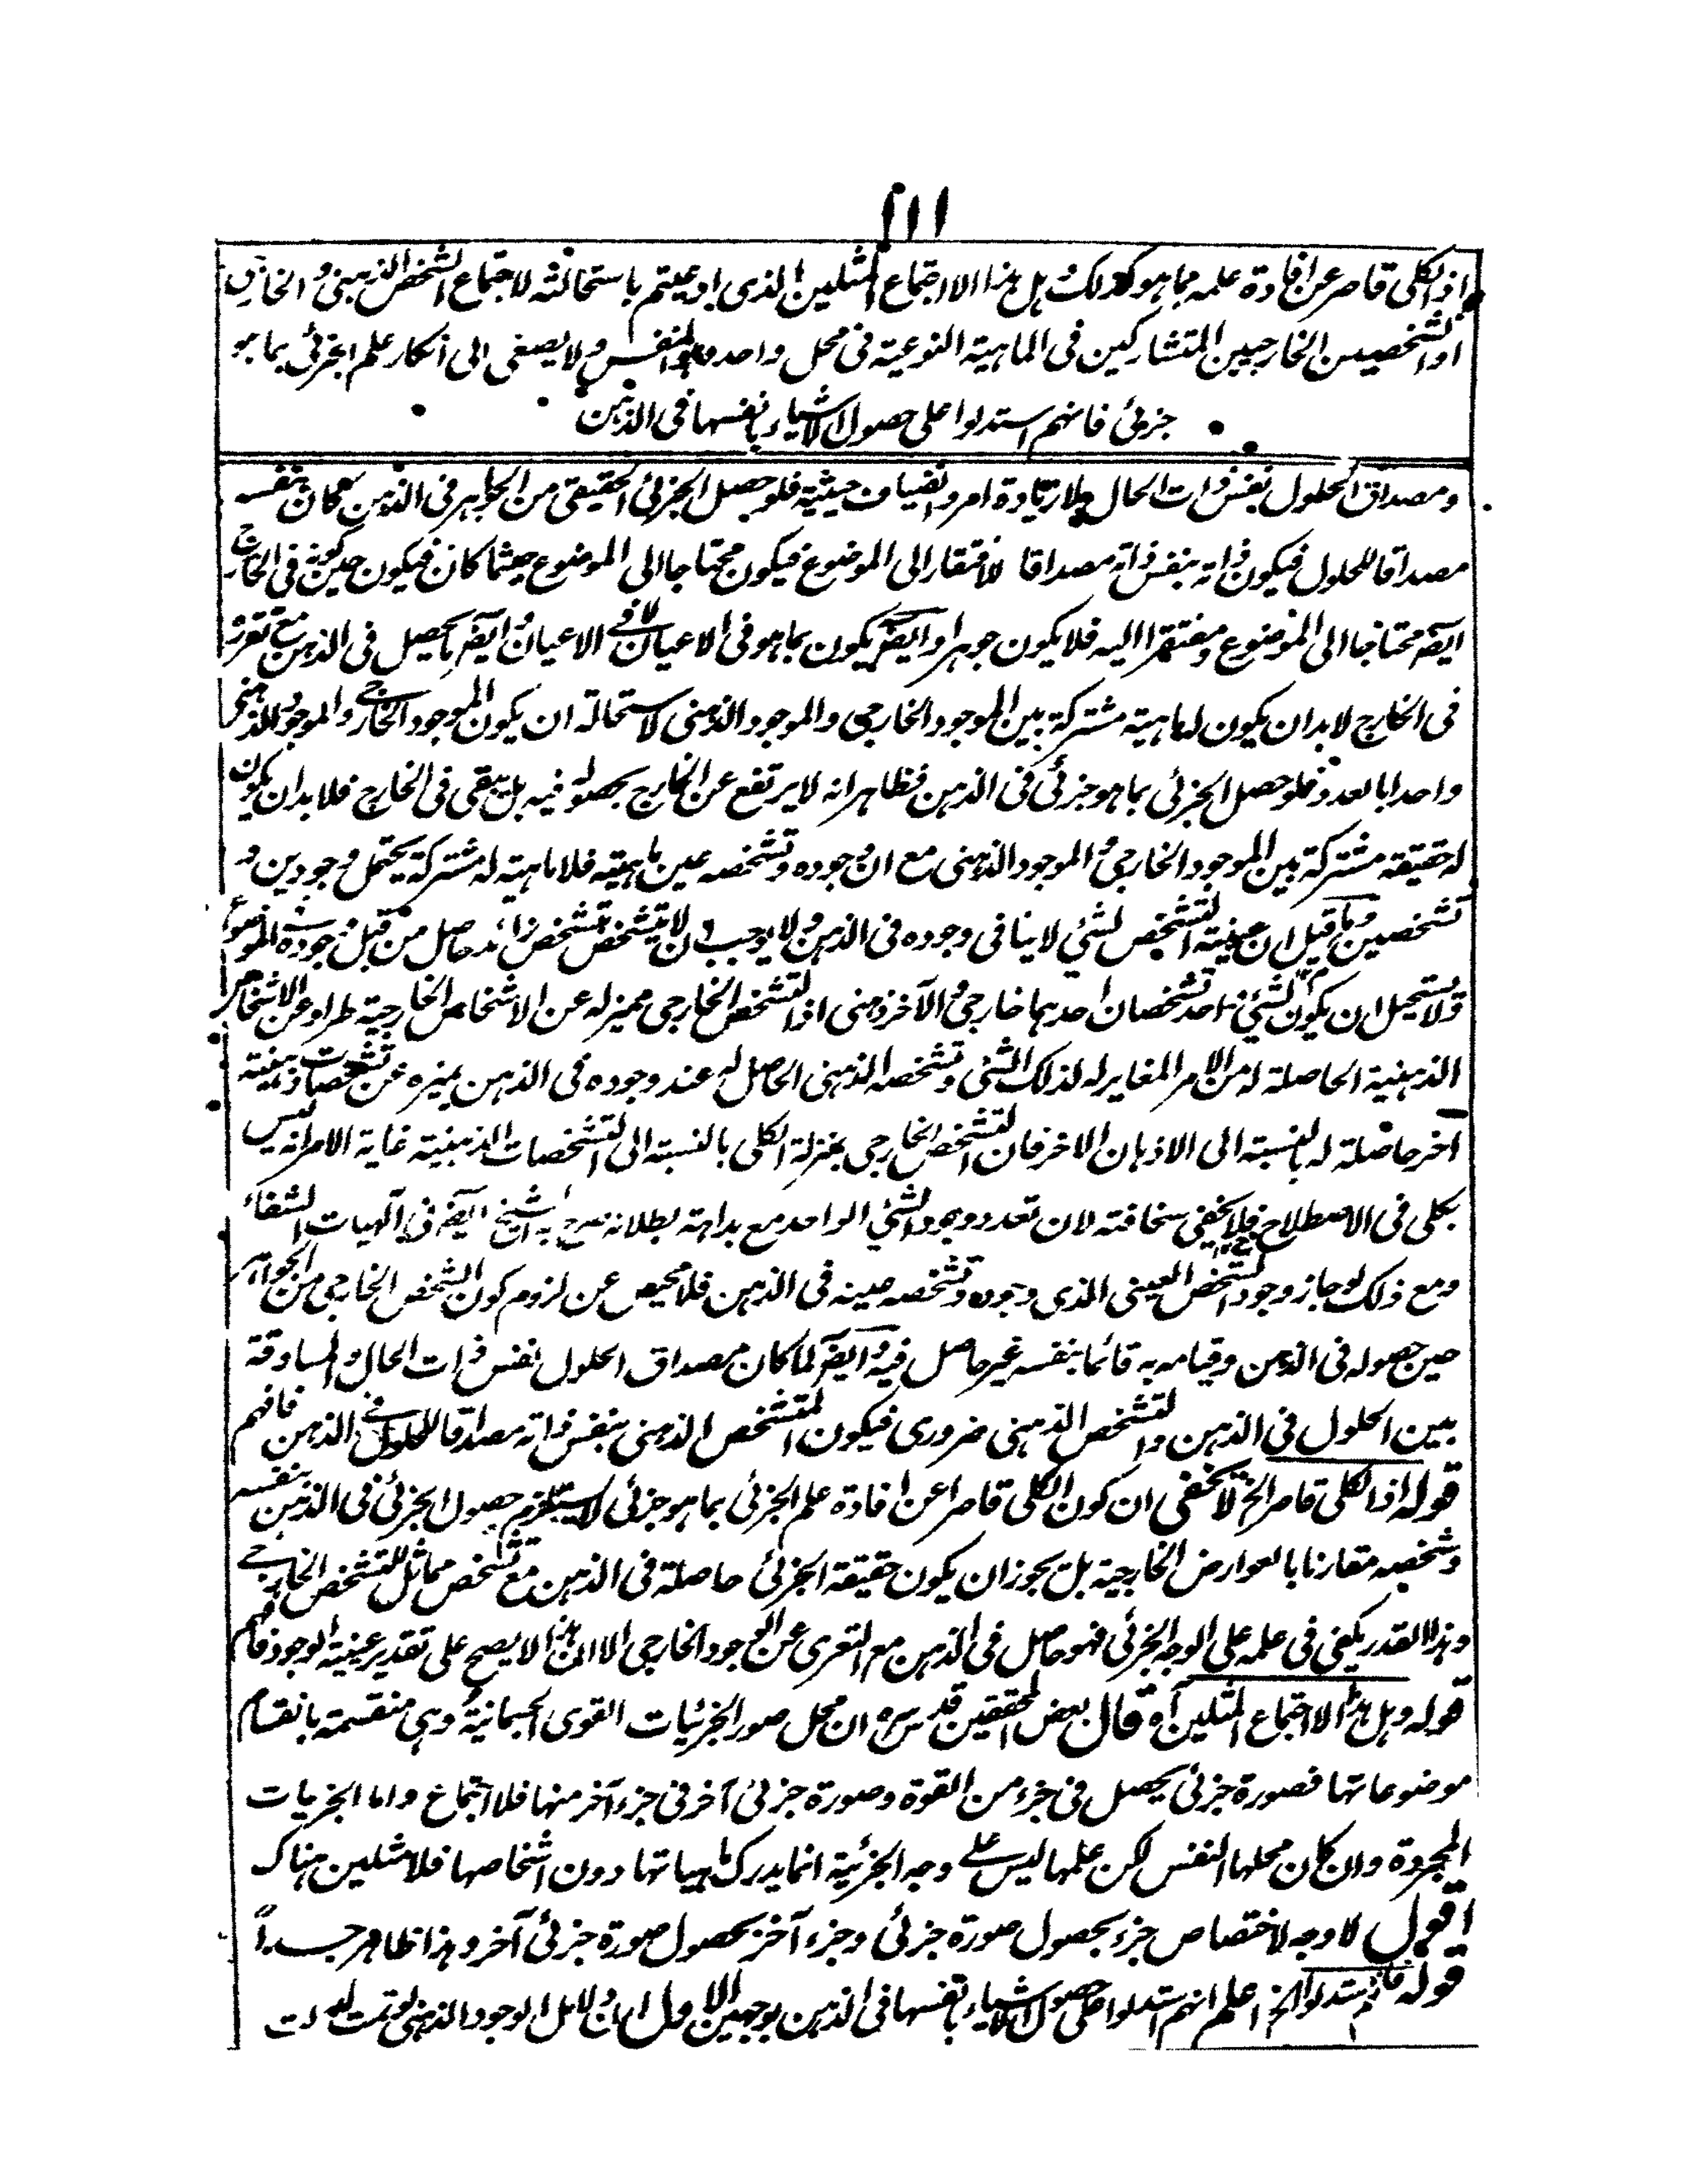 ١١١
اذ الكلى قاصر عن افادة علمه بما هو كذلك وهل هذا الا اجتماع المثلين الذى ادعيتم باستحالته لاجتماع الشخص الذهنى والخارجى
او الشخصين الخارجيين المتشاركين فى الماهية النوعية فى محل واحد وهو النفس ولا يصغى الى انكار علم الجزئى بما هو
جزئى فانهم استدلوا على حصول الاشياء بانفسها فى الذهن
ومصداق الحلول نفس ذات الحال بلا زيادة امر وانضياف حيثية فلو حصل الجزئى الحقيقى من الجواهر فى الذهن لكان بنفسه
مصداقا للحلول فيكون ذاته بنفس ذاته مصداقا لافتقار الى الموضوع فيكون محتاجا الى الموضوع حيثما كان فيكون حين كونه فى الخارج
ايضا محتاجا الى الموضوع ومفتقرا اليه فلا يكون جوهرا وايضا يكون بما هو فى الاعيان لا فى الاعيان وايضا ما يحصل فى الذهن مع تقرره
فى الخارج لابد ان يكون له ماهية مشتركة بين الموجود الخارجى والموجود الذهنى لاستحالة ان يكون الموجود الخارجى والموجود الذهنى
واحدا بالعدد فلو حصل الجزئى بما هو جزئى فى الذهن فظاهر انه لا يرتفع عن الخارج بحصوله فيه بل يبقى فى الخارج فلابد ان يكون
له حقيقة مشتركة بين الموجود الخارجى والموجود الذهنى مع ان وجوده وتشخصه عين ماهيته فلا ماهية له مشتركة يحتمل وجودين و
تشخصين وما قيل ان عينية التشخص لشئ لا ينافى وجوده فى الذهن ولا يوجب ان لا يتشخص بتشخص زائد حاصل من قبل وجوده فى الموضوع
ولا يستحيل ان يكون لشئ واحد تشخصان احدهما خارجى والآخر ذهنى اذ التشخص الخارجى مميز له عن الاشخاص الخارجية طرا وعن الاشخاص
الذهنية الحاصلة له من الامر المغاير له لذلك الشئ وتشخصه الذهنى الحاصل له عند وجوده فى الذهن يميزه عن تشخصات ذهنية
اخر حاصلة له بالنسبة الى الاذهان الاخر فان التشخص الخارجى بمنزلة الكلى بالنسبة الى التشخصات الذهنية غاية الامر انه ليس
بكلى فى الاصطلاح فلا يخفى سخافته لان تعدد وجود الشئ الواحد مع بداهة بطلانه صرح به الشيخ ايضا فى الهيات الشفاء
ومع ذلك لو جاز وجود الشخص العينى الذى وجوده وتشخصه عينه فى الذهن فلا محيص عن لزوم كون الشخص الخارجى من الجواهر
حين حصوله فى الذهن وقيامه به قائما بنفسه غير حاصل فيه وايضا لما كان مصداق الحلول نفس ذات الحال والمساوقة
بين الحلول فى الذهن والتشخص الذهنى ضرورى فيكون المتشخص الذهنى بنفس ذاته مصداقا للحلول فى الذهن فافهم
قوله اذ الكلى قاصر الخ لا يخفى ان كون الكلى قاصرا عن افادة علم الجزئى بما هو جزئى لا يستلزم حصول الجزئى فى الذهن بنفسه
وشخصه مقارنا بالعوارض الخارجية بل يجوز ان يكون حقيقة الجزئى حاصلة فى الذهن مع تشخص مماثل للتشخص الخارجى
وهذا القدر يكفى فى علمه على الوجه الجزئى فهو حاصل فى الذهن مع التعرى عن الوجود الخارجى الا ان هذا لا يصح على تقدير عينية الوجود فافهم
قوله وهل هذا الا اجتماع المثلين آه قال بعض المحققين قدس سره ان محل صور الجزئيات القوى الجسمانية وهى منقسمة بانقسام
موضوعاتها فصورة جزئى يحصل فى جزء من القوة وصورة جزئى آخر فى جزء آخر منها فلا اجتماع واما الجزيات
المجردة وان كان محلها النفس لكن علمها ليس على وجه الجزئية انما يدرك ماهياتها دون اشخاصها فلا مثلين هناك
اقول لا وجه لاختصاص جزء بحصول صورة جزئى وجزء آخر بحصول صورة جزئى آخر وهذا ظاهر جدا
قوله فانهم استدلوا الخ اعلم انهم استدلوا على حصول الاشياء بانفسها فى الذهن بوجهين الاول ان دلائل الوجود الذهنى لو تمت لدلت